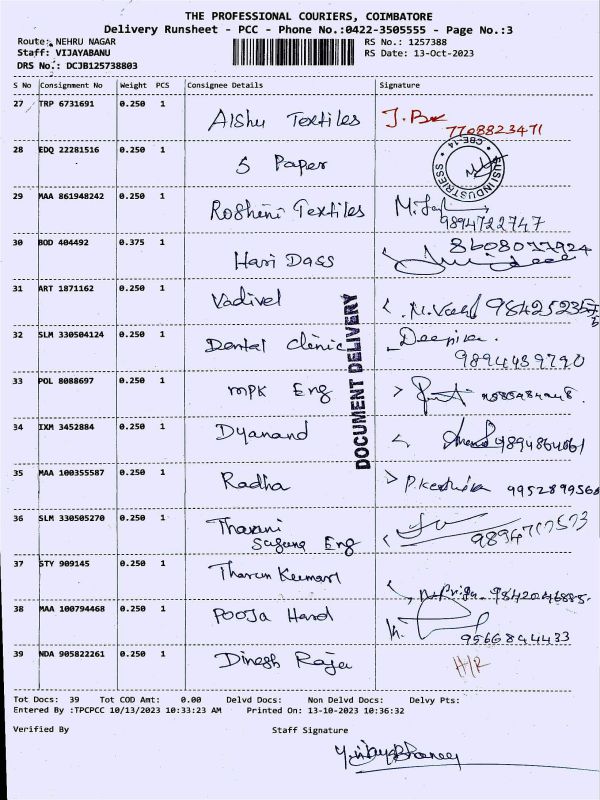 THE PROFESSIONAL COURIERS, COIMBATORE
Delivery Runsheet - PCC - Phone No.:0422-3505555 - Page No.:3
Route: NEHRU NAGAR RS No.: 1257388
Staff: VIJAYABANU RS Date: 13-Oct-2023
DRS No.: DCJB125738803
S No Consignment No Weight PCS Consignee Details Signature
27 TRP 6731691 0.250 1 Aishu Textiles
7708823471
28 EDQ 22281516 0.250 1 S Paper
CBE-14 INDUSTRIES
29 MAA 861948242 0.250 1 Roshini Textiles
9894722747
30 BOD 404492 0.375 1 Hari Dass 8608077924
31 ART 1871162 0.250 1 Vadivel
32 SLM 330504124 0.250 1 Dental clinic Deepika.
DOCUMENT DELIVERY
33 POL 8088697 0.250 1 mpk Eng
34 IXM 3452884 0.250 1 Dyanand
35 MAA 100355587 0.250 1 Radha
36 SLM 330505270 0.250 1 Tharani
Eng
37 STY 909145 0.250 1 Tharun
38 MAA 100794468 0.250 1 Pooja Hard
9566844433
39 NDA 905822261 0.250 1 Dinesh Raja
Tot Docs: 39 Tot COD Amt: 0.00 Delvd Docs: Non Delvd Docs: Delvy Pts:
Entered By :TPCPCC 10/13/2023 10:33:23 AM Printed On: 13-10-2023 10:36:32
Verified By Staff Signature